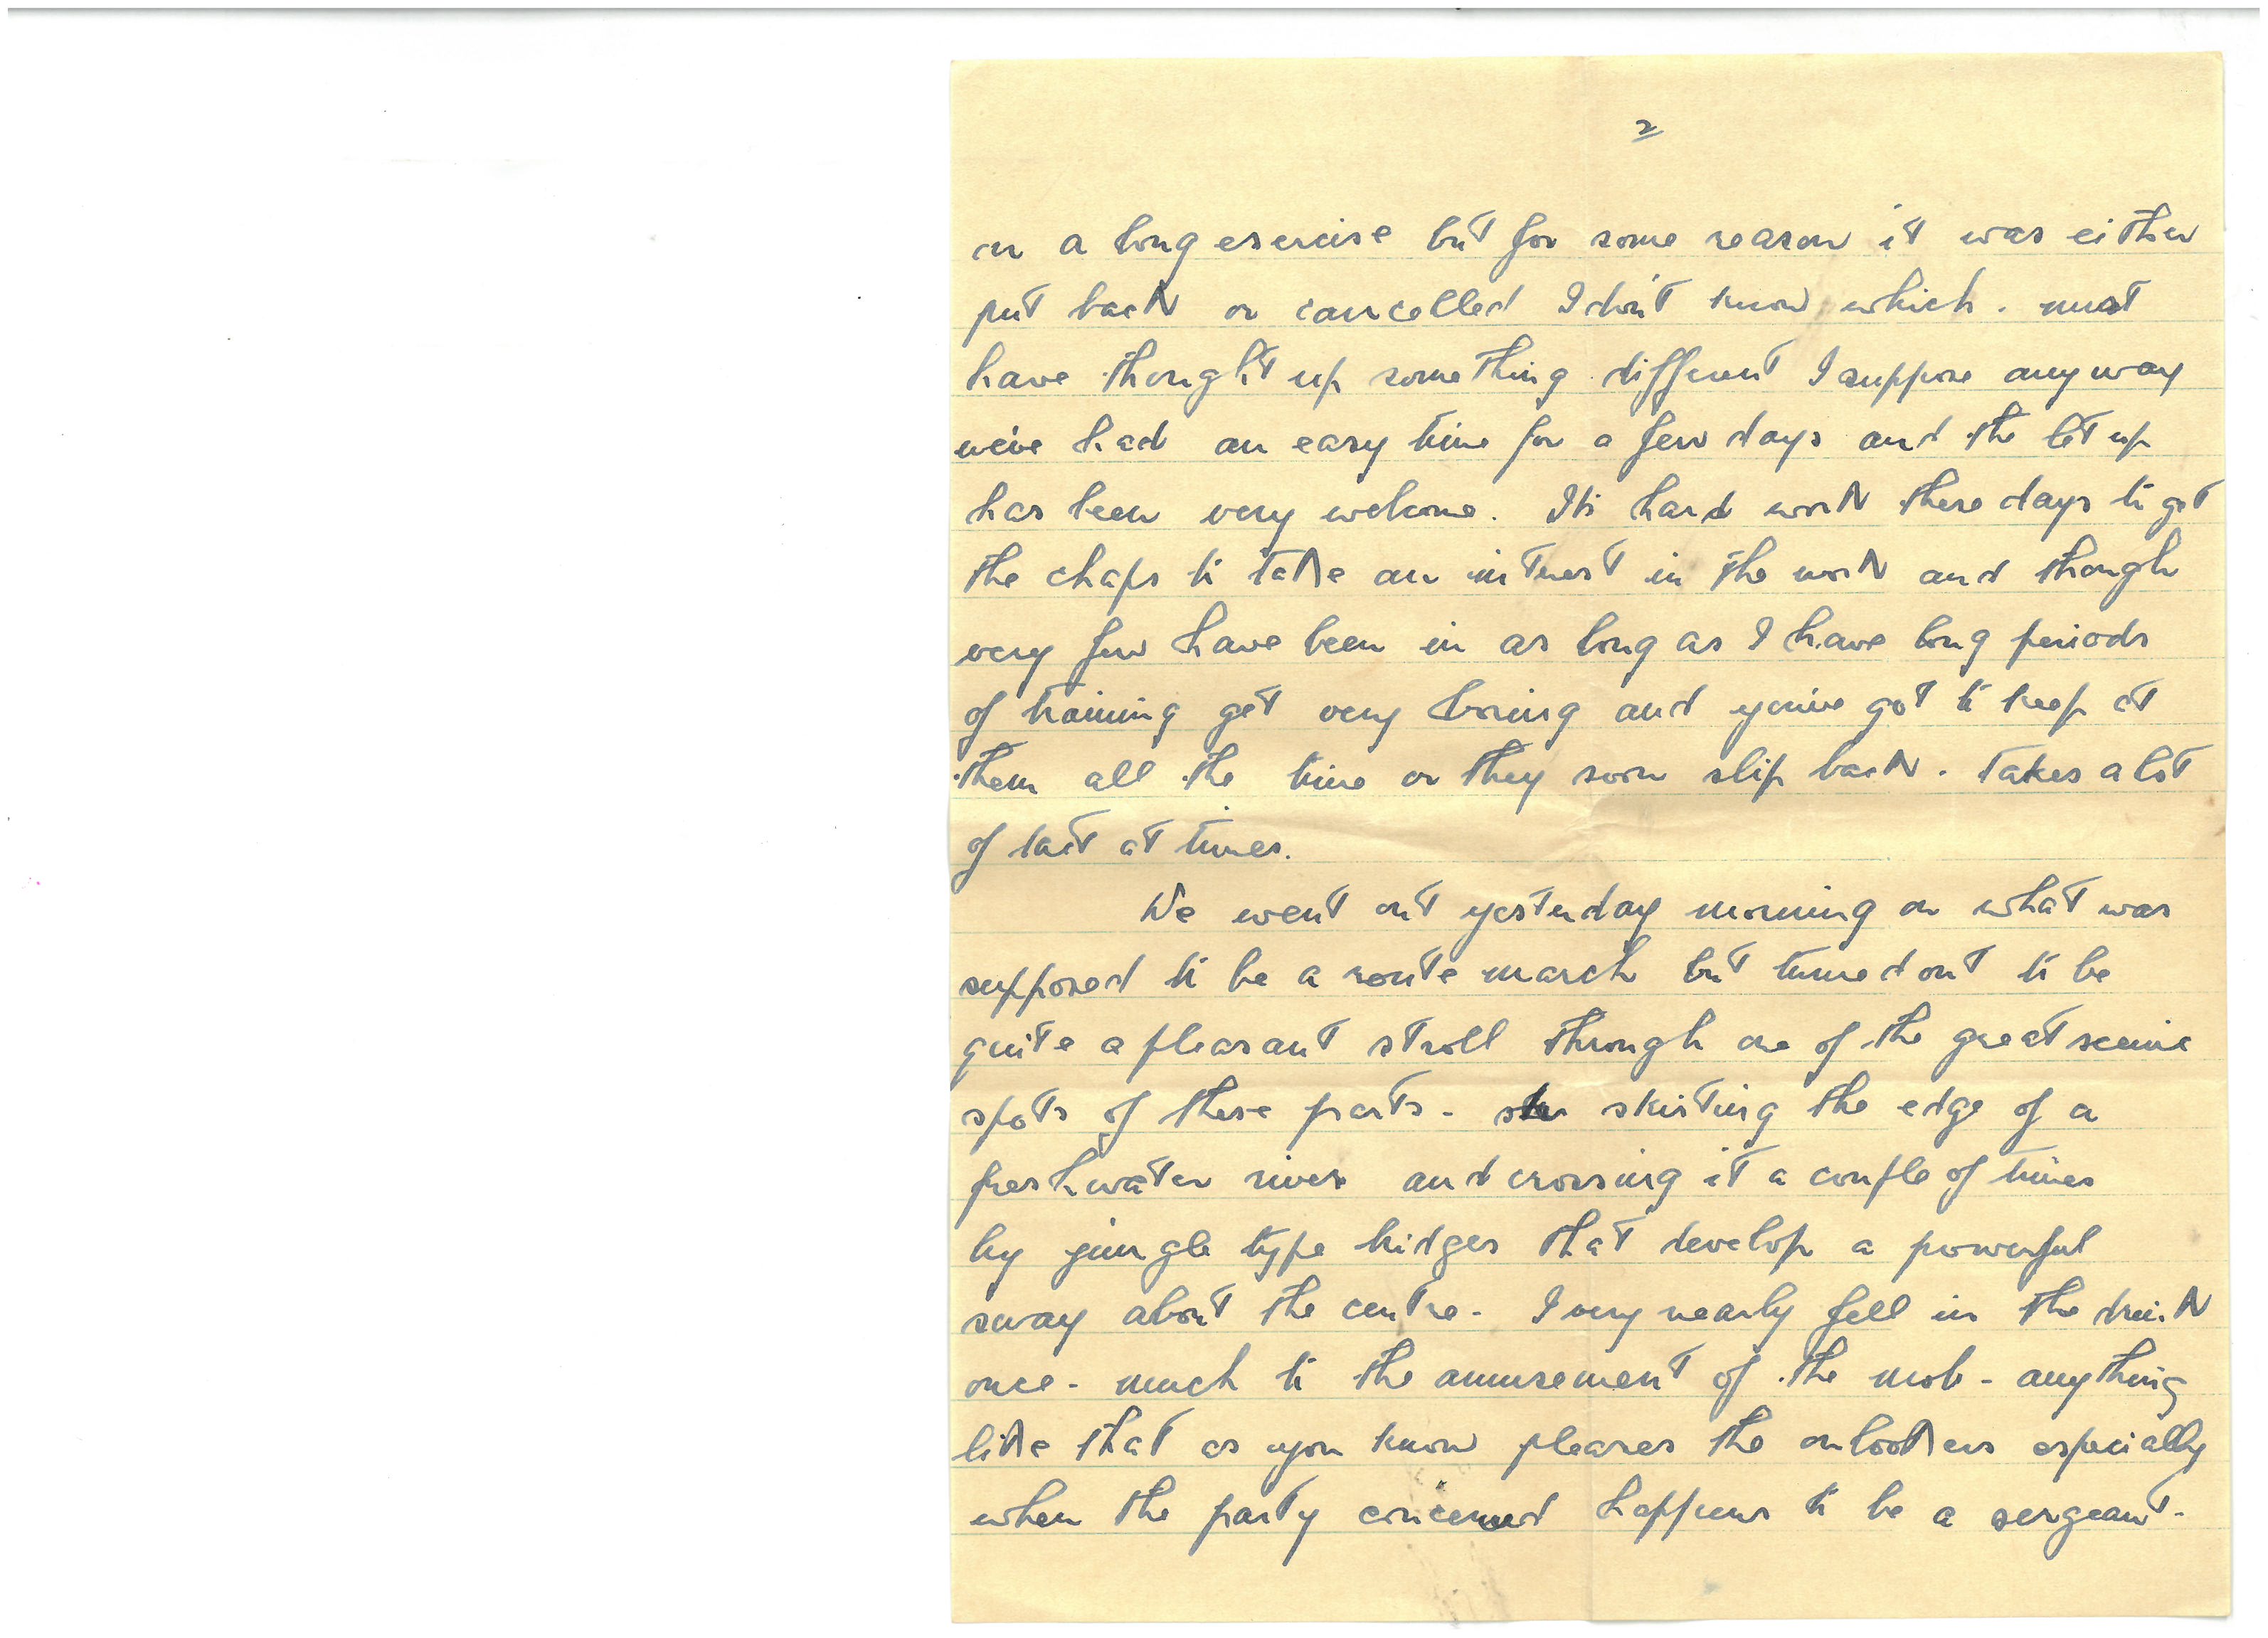 2
on a long exercise but for some reason it was either
put back or cancelled I don't know which. must
have thought up something different I suppose anyway
we've had an easy time for a few days and the let up
has been very welcome. It's hard work these days to get
the chaps to take an interest in the work and though
very few have been in as long as I have long periods
of training get very boring and you've got to keep at
them all the time or they soon slip back. takes a lot
of tact at times.
We went out yesterday morning on what was
supposed to be a route march but turned out to be
quite a pleasant stroll through one of the great scenic
spots of these parts - skirting the edge of a
freshwater river and crossing it a couple of times
by jungle type bridges that develop a powerful
sway about the centre - I very nearly fell in the drink
once - much to the amusement of the mob - anything
like that as you know pleases the onlookers especially
when the party concerned happens to be a sergeant -